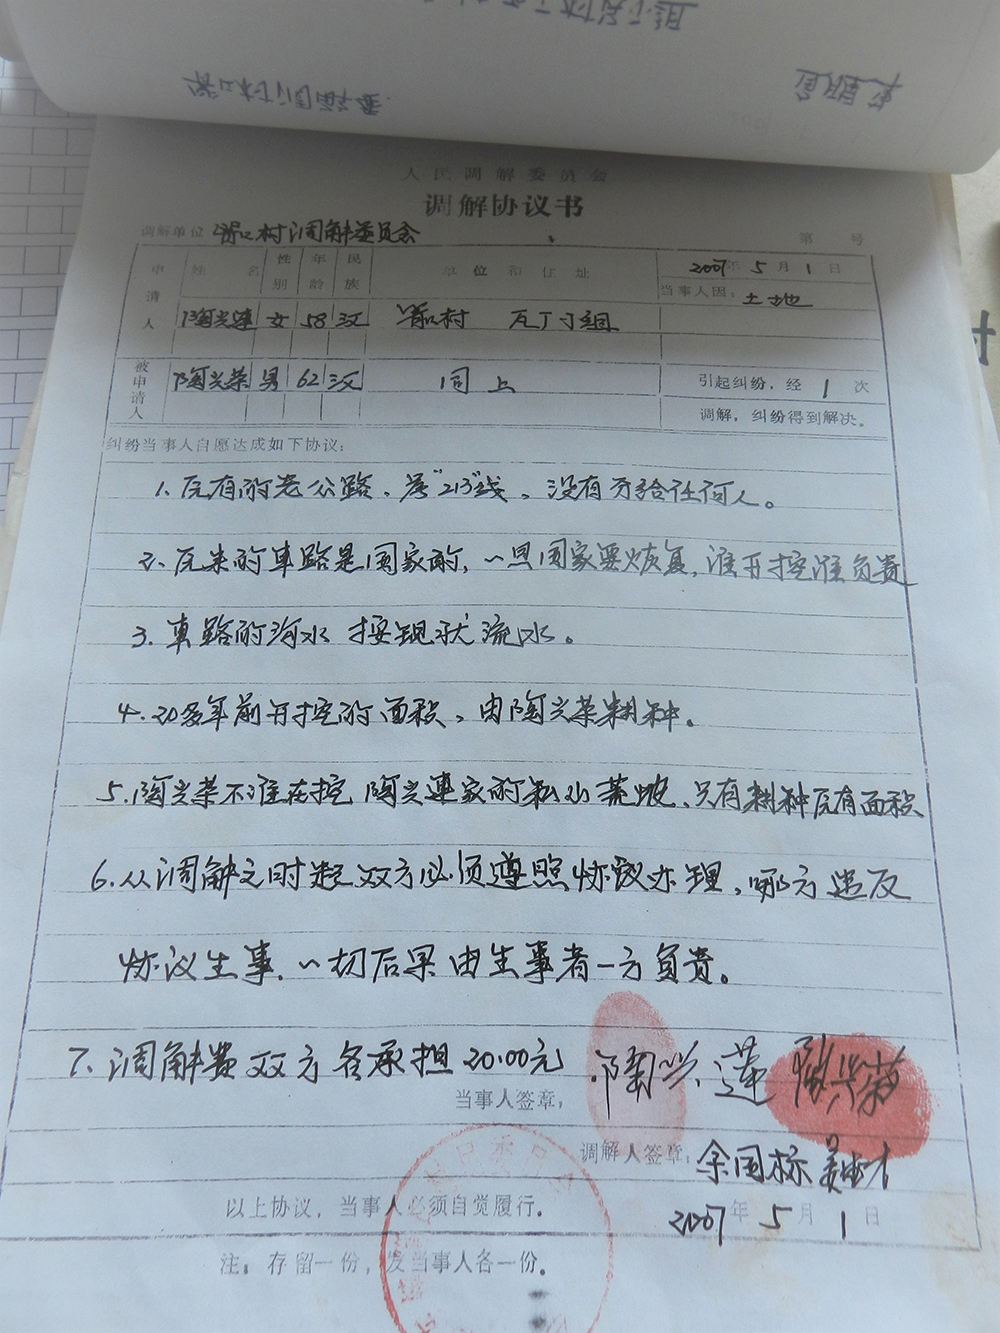 人民调解委员会
调解协议书
调解单位 村调解委员会 第 号
申请人 姓名 性别 年龄 民族 单位和住址 2007年5月1日
当事人因：土地
陶兴连 女 58 汉 村 瓦丁小组
被申请人 陶兴荣 男 62 汉 同上 引起纠纷，经 1 次
调解，纠纷得到解决。
纠纷当事人自愿达成如下协议：
1、瓦有的老公路、老“213”线，没有分给任何人。
2、瓦来的車路是国家的，一旦国家要恢复，谁开挖谁负责
3、車路的沟水按现状流水。
4、20多年前开挖的面积，由陶兴荣耕种。
5、陶兴荣不准在挖陶兴連家的私山荒坡、只有耕种瓦有面积
6、从调解之时起双方必须遵照协议办理，哪方违反
协议生事，一切后果由生事者一方负责。
7、调解费双方各承担20.00元
陶兴莲 陶兴荣
当事人签章：
调解人签章：余国标
以上协议，当事人必须自觉履行。
2007年5月1日
注：存留一份，发当事人各一份。